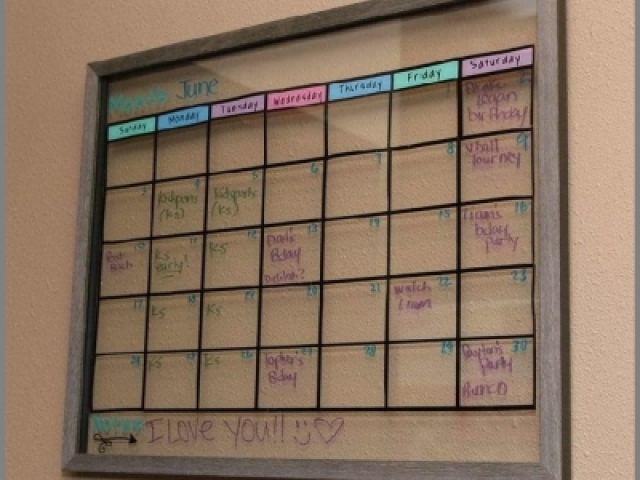 Month: June
Sunday Monday Tuesday Wednesday Thursday Friday Saturday
1
logan
birthday
3 4 5 6 7 8 9
Kidsports
(KS)
Kidsports
(KS)
vball
tourney
10 11 12 13 14 15 16
KS
party!
KS
Dad's
Bday
Liam's
bday
party
17 18 19 20 21 22 23
KS
KS
watch
Liam
24 25 26 27 28 29 30
KS
KS
Bday
Payton's
party
BUNCO
Notes
I LOVE YOU!!